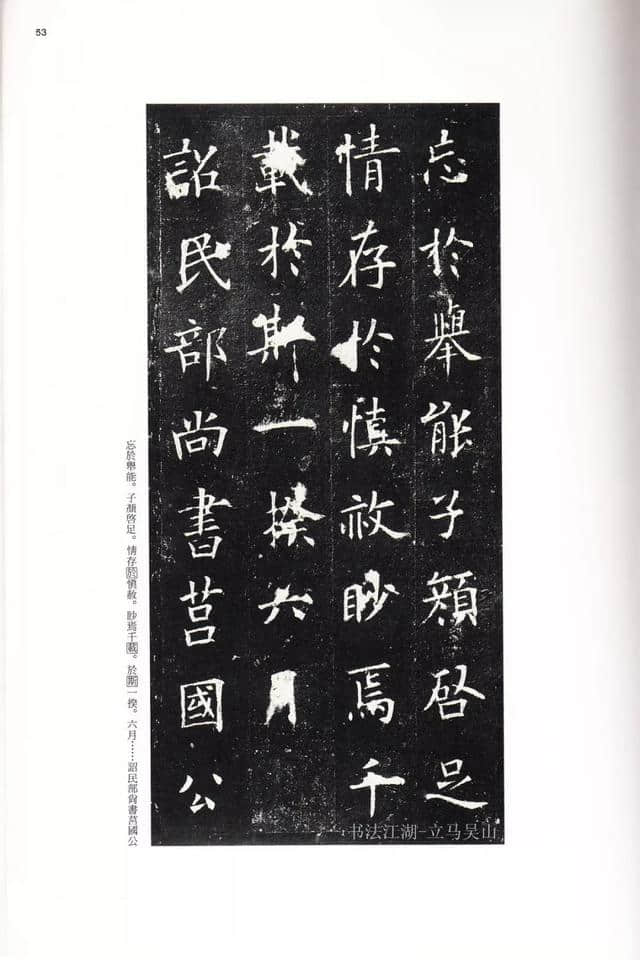 53
忘於舉能子顔啓足
情存於慎赦眇焉千
載於斯一揆六月
詔民部尚書莒國公
忘於舉能。子顔啓足。情存於慎赦。眇焉千載。於斯一揆。六月……詔民部尚書莒國公
书法江湖-立马吴山